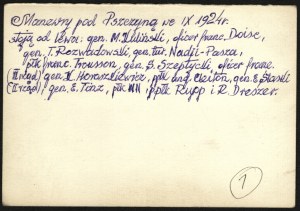 Manewry pod Pszczyną we IX 1924r.
stoją od lewa: gen. M. Kuliński, oficer franc. Doise,
gen. T. Rozwadowski, gen. tur. Nadji-Pasza,
ppłk franc. Trousson, gen. S. Szeptycki, oficer franc.
(II rząd) gen. K. Horoszkiewicz, ppłk ang. Cleiton, gen. E.
(III rząd), gen. E. Tinz, płk NN i ppłk Rupp i R. Dreszer.
1